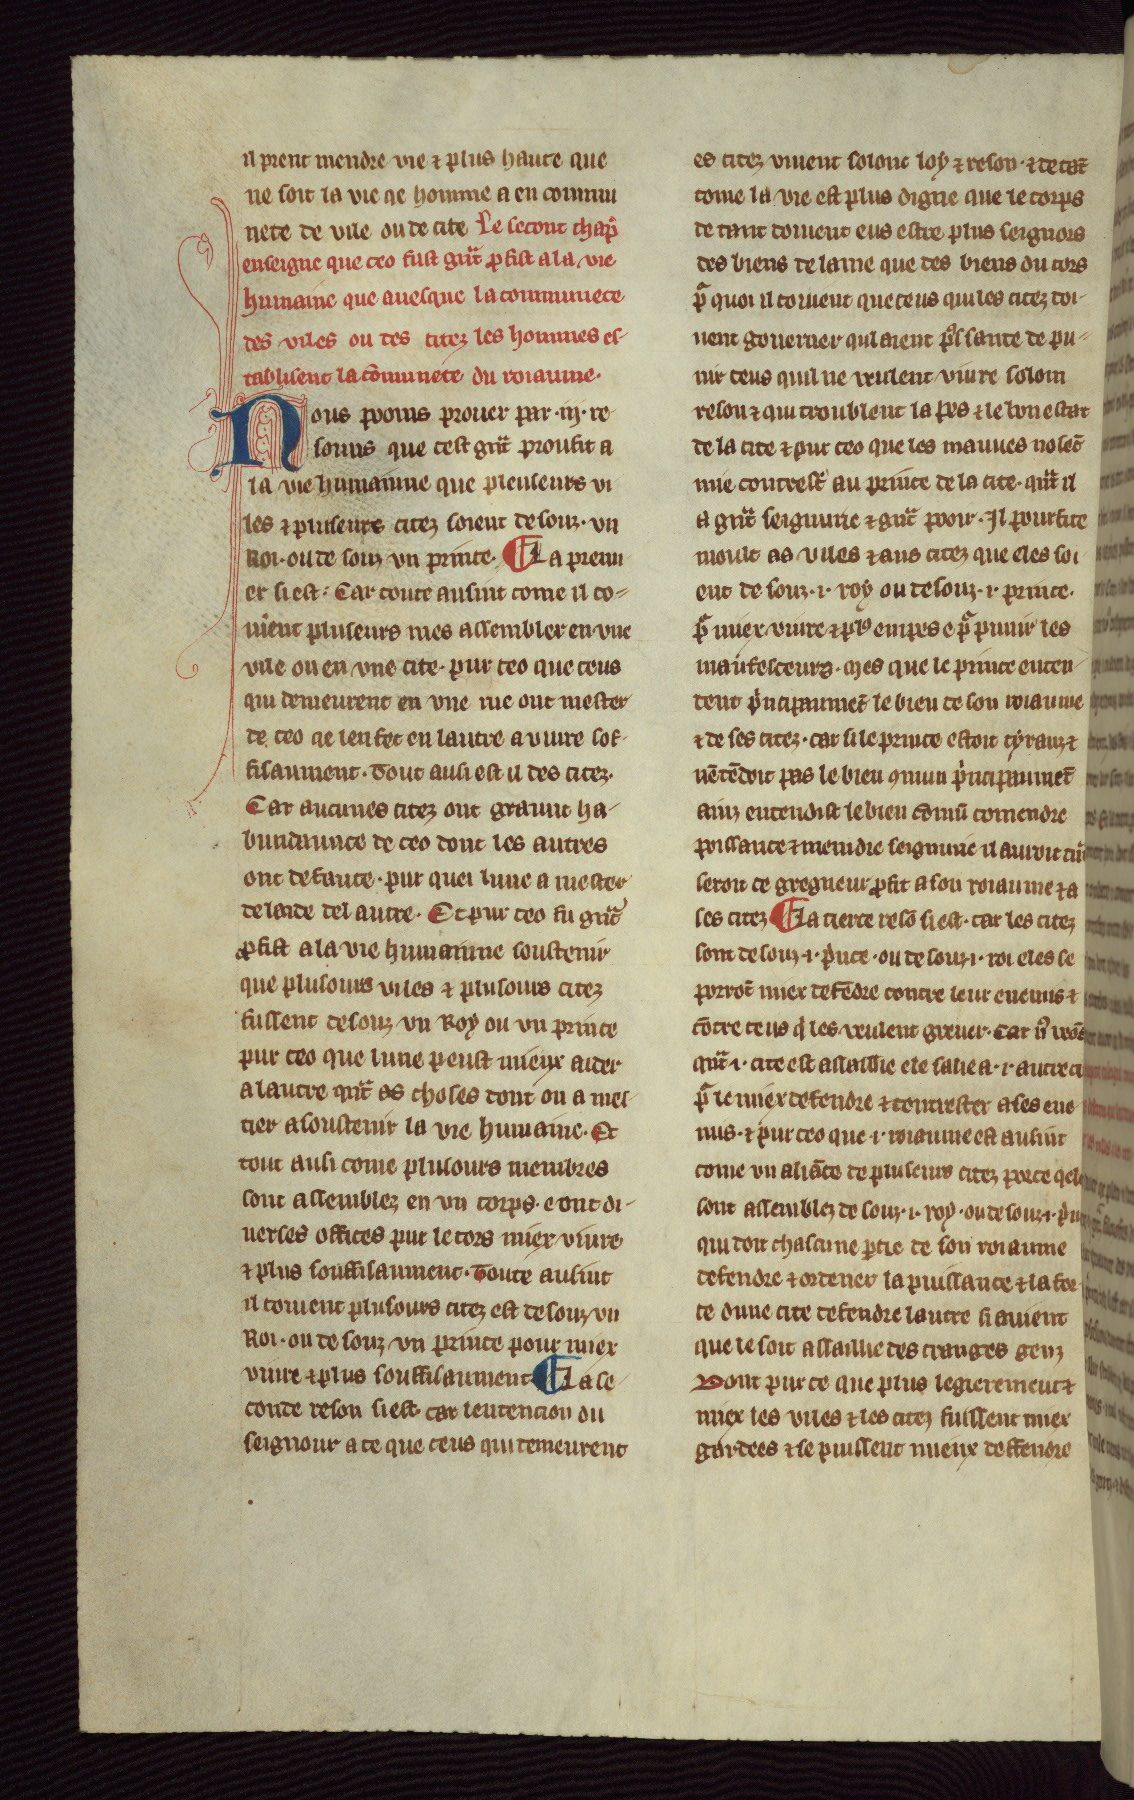 il prent mendre vie ⁊ plus haute que
ne soit la vie qe homme a en commu
nete de vile ou de cite Le secont chap̄
enseigne que ceo fust gn̄t ꝓfist a la vie
humaine que auesque la communete
des viles ou des citez les hommes es-
tablisent la cōmunete du roiaume.
Nous pooms prouer par .iij. re
sonus que cest gn̄t proufit a
la vie humainne que pleuseurs vi
les ⁊ pluseurs citez soient desouz. vn
Roi. ou de souz vn prince. La premi
er si est: Car toute ausint come il co-
uient pluseurs rues assembler en vne
vile ou en vne cite. pur ceo que ceus
qui demeurent en vne rue ont mester
de ceo qe len fet en lautre a viure sof-
fisaument. Tout ausi est il des citez.
Car aucunes citez ont graunt ha-
bundaunce de ceo dont les autres
ont defaute. pur quei lune a mester
de laide del autre. Et pur ceo fu gn̄t
ꝓfist a la vie humainne soustenir
que plusours viles ⁊ plusours citez
fussent desouz vn Roy ou vn prince
pur ceo que lune peust mieux aider
a lautre qn̄t as choses dont on a mes-
tier a soustenir la vie humaine. Et
tout ausi come plusours membres
sont assemblez en vn corps. e ont di-
uerses offices pur le cors miex viure
⁊ plus souffisaument. Toute ausint
il couient plusours citez est desouz vn
Roi. ou de souz vn prince pour miex
viure ⁊ plus souffisaument La se-
conde reson si est. car lentencion du
seignour a ce que ceus qui demeurent
es citez viuent solonc loy ⁊ reson. ⁊ de tāt
come la vie est plus digne que le corps
de tant doiuent eus estre plus seignors
des biens de lame que des biens du cors
p̄ quoi il couient que ceus qui les citez doi-
uent gouerner qui aient p̄ssance de pu-
nir ceus quil ne veulent viure solom
reson ⁊ qui troublent la pes ⁊ le bon estat
de la cite ⁊ pur ceo que les mauues nosēt
mie contrest̄ au prince de la cite. qn̄t il
a gn̄t seignurie ⁊ gn̄t pooir. Il pourfite
moult as viles ⁊ aus citez que eles soi
ent de souz .i. roy ou de souz .i. prince.
p̄ miex viure ⁊ pl⁹ en pes e p̄ punir les
maufesceurs. Mes que le prince enten-
dent p̄ncipaumēt le bien de son roiaume
⁊ de ses citez. car si le prince estoit tyranz ⁊
nētēdoit pas le bien 9mun p̄ncipaumēt
ainz entendist le bien cōmū comendre
poissance ⁊ meindre seignurie il auroit
seroit de gregneur ꝓfit a son roiaume ⁊ a
ses citez La tierce resō si est. car les citez
sont de souz .i. p̄nce. ou de souz .i. roi eles se
porrōt miex defēdre contre leur enemis ⁊
cōtre ceus q̄ les veulent greuer. Car
qn̄t .i. cite est assaillie ele salie a .i. autre
p̄ le miex defendre ⁊ contrester a ses ene
mis. ⁊ pur ceo que .i. roiaume est ausint
come vn aliāce de pluseurs citez porce
sont assemblez de souz .i. roy. ou de souz .i.
qui doit chascune ꝑtie de son roiaume
defendre ⁊ ordener la puissance ⁊ la for
ce dune cite defendre lautre si auient
que le soit assaillie des estranges genz
Dont pur ce que plus legierement ⁊
miex les viles ⁊ les citez fuissent miex
gardees ⁊ se puissent mieux deffendre